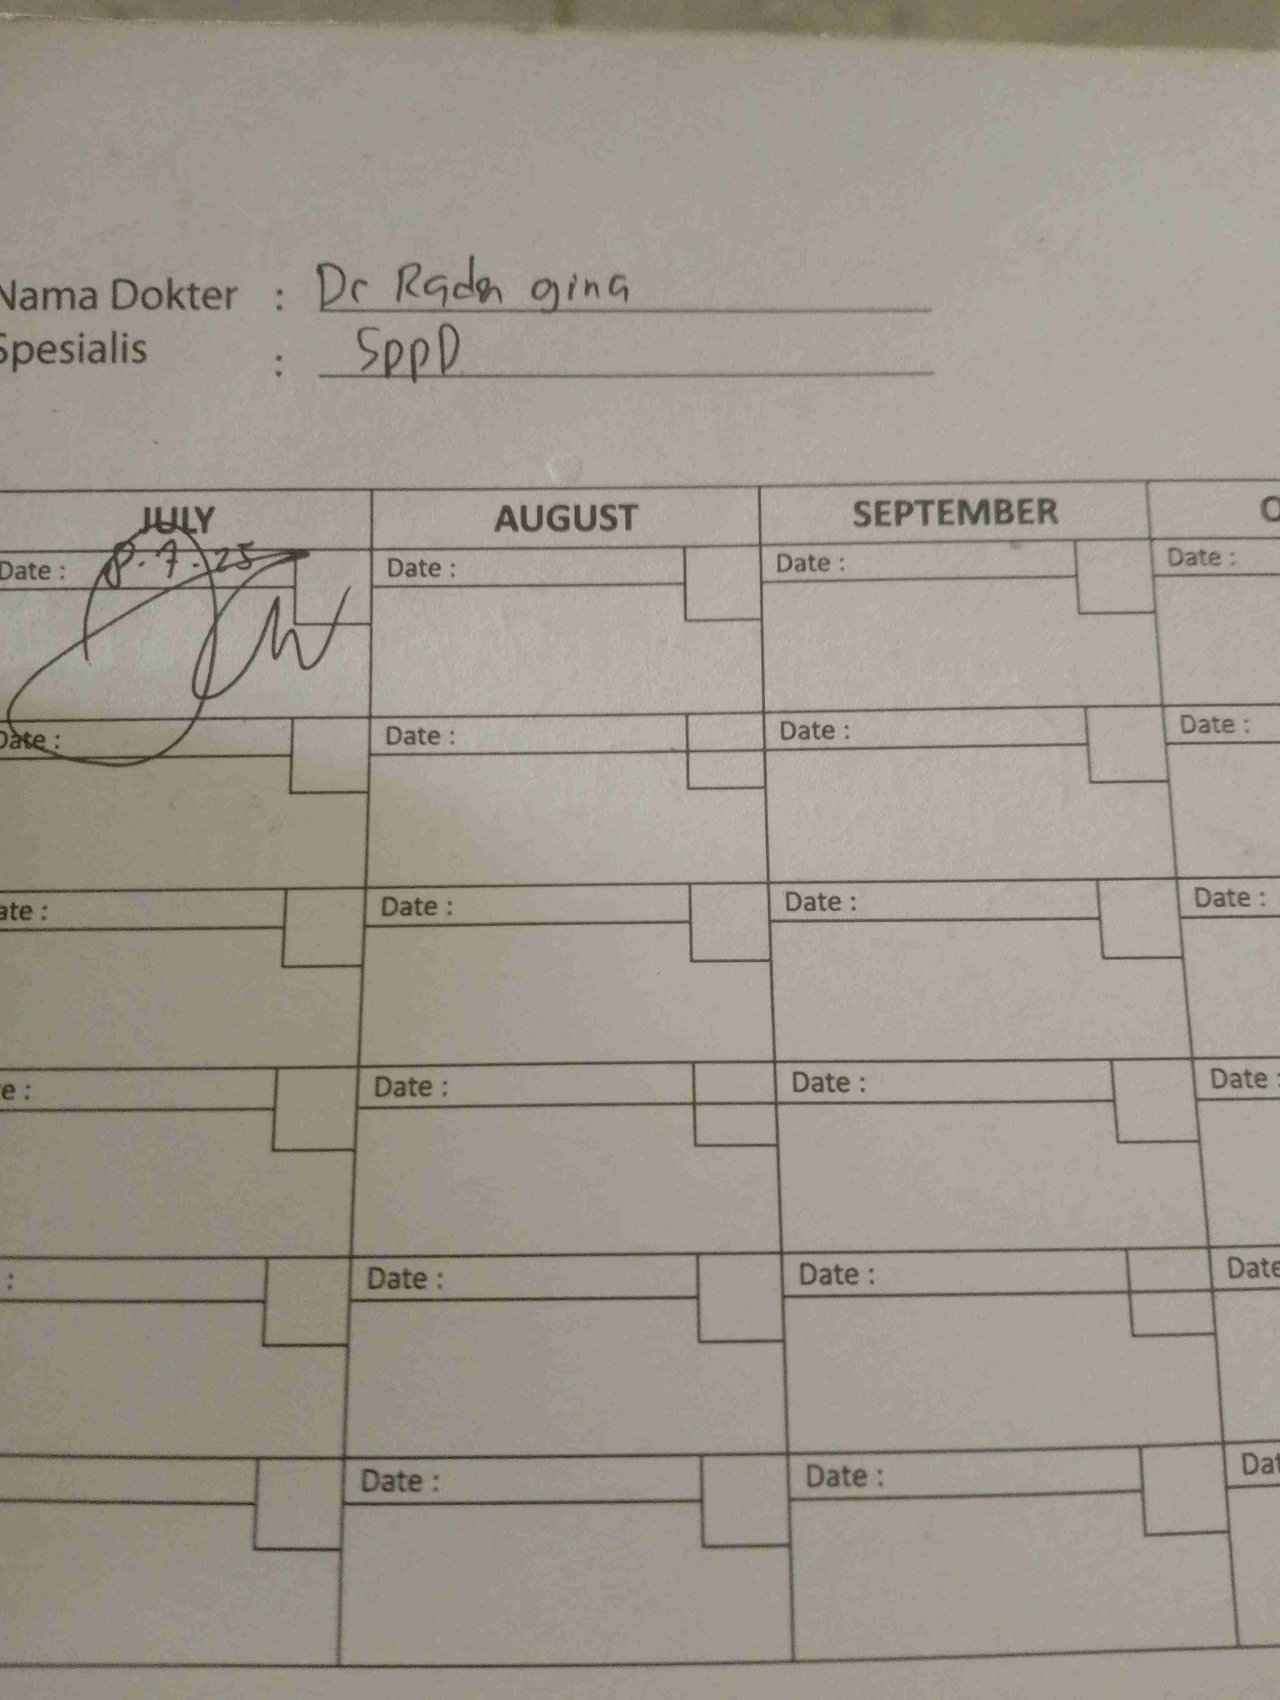 Nama Dokter : Dr Raden gina
Spesialis : SppD
JULY AUGUST SEPTEMBER O
Date : 8.7.25 Date : Date : Date :
Date : Date : Date : Date :
ate : Date : Date : Date :
e : Date : Date : Date :
: Date : Date : Date
Date : Date : Dat